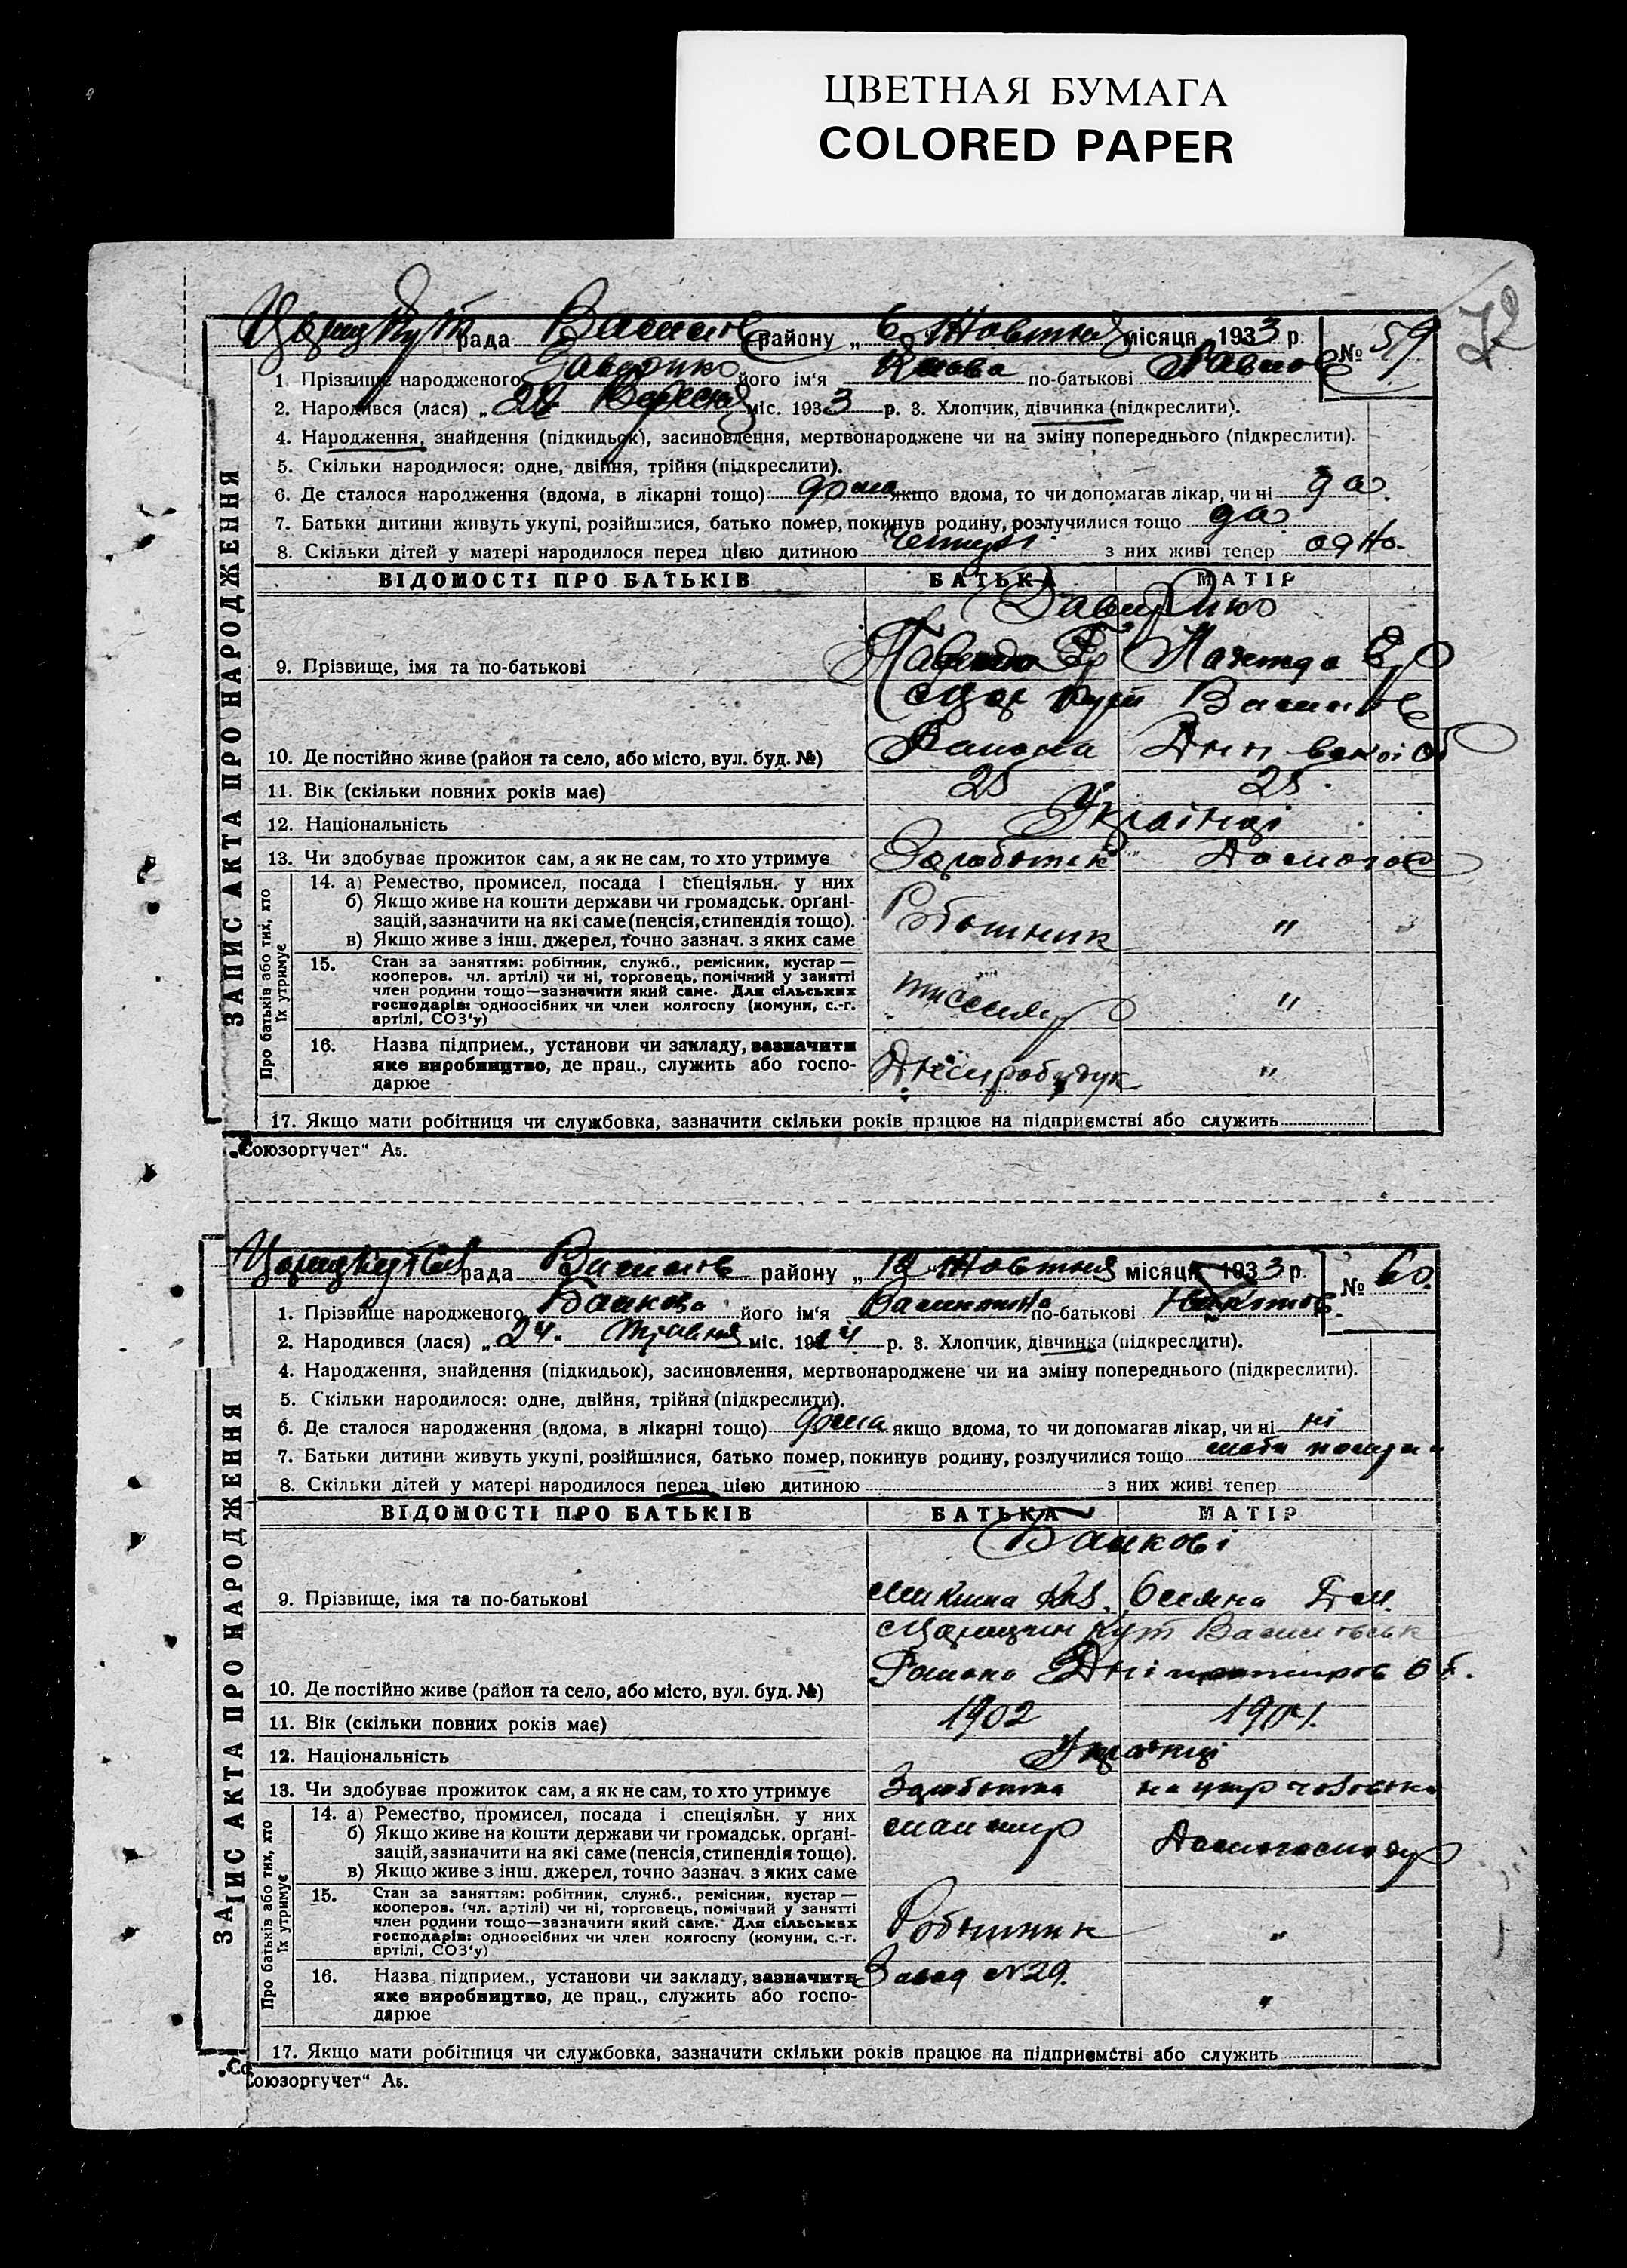 ЦВЕТНАЯ БУМАГА
COLORED PAPER
72
рада Василів району „ 6 " Жовтня місяця 1933 р. № 59
1. Прізвище народженого його ім'я по-батькові Павлов
2. Народився (лася) „ Вересня міс. 1933 р. 3. Хлопчик, дівчинка (підкреслити).
4. Народження, знайдення (підкидьок), засиновлення, мертвонароджене чи на зміну попереднього (підкреслити).
5. Скільки народилося: одне, двійня, трійня (підкреслити).
6. Де сталося народження (вдома, в лікарні тощо) дома якщо вдома, то чи допомагав лікар, чи ні да.
7. Батьки дитини живуть укупі, розійшлися, батько помер, покинув родину, розлучилися тощо да
8. Скільки дітей у матері народилося перед цією дитиною з них живі тепер одно.
ВІДОМОСТІ ПРО БАТЬКІВ БАТЬКА МАТІР
9. Прізвище, імя та по-батькові
Кут Василів
10. Де постійно живе (район та село, або місто, вул. буд. №) Района
11. Вік (скільки повних років має) 25 25
12. Національність Українці
13. Чи здобуває прожиток сам, а як не сам, то хто утримує Заробіток
14. а) Ремество, промисел, посада і спеціяльн. у них
б) Якщо живе на кошти держави чи громадськ. органі-
зацій, зазначити на які саме (пенсія, стипендія тощо). Робітник "
в) Якщо живе з інш. джерел, точно зазнач. з яких саме
15. Стан за заняттям: робітник, служб., ремісник, кустар —
кооперов. чл. артілі) чи ні, торговець, помічний у занятті
член родини тощо—зазначити який саме. Для сільських "
господарів: одноосібних чи член колгоспу (комуни, с.-г.
артілі, СОЗ'у)
16. Назва підприєм., установи чи закладу, зазначити
яке виробництво, де прац., служить або госпо- "
дарює
17. Якщо мати робітниця чи службовка, зазначити скільки років працює на підприємстві або служить
Про батьків або тих, хто їх утримує
ЗАПИС АКТА ПРО НАРОДЖЕННЯ
„Союзоргучет" Аб.
рада Василів району „ 12 " Жовтня місяця 1933 р. № 60.
1. Прізвище народженого Байкова його ім'я Валентина по-батькові
2. Народився (лася) „ 24. Травня міс. 19 р. 3. Хлопчик, дівчинка (підкреслити).
4. Народження, знайдення (підкидьок), засиновлення, мертвонароджене чи на зміну попереднього (підкреслити).
5. Скільки народилося: одне, двійня, трійня (підкреслити).
6. Де сталося народження (вдома, в лікарні тощо) дома якщо вдома, то чи допомагав лікар, чи ні ні
7. Батьки дитини живуть укупі, розійшлися, батько помер, покинув родину, розлучилися тощо
8. Скільки дітей у матері народилося перед цією дитиною з них живі тепер
ВІДОМОСТІ ПРО БАТЬКІВ БАТЬКА МАТІР
Байкові
9. Прізвище, імя та по-батькові Микита
Царицин Кут Василівськ
10. Де постійно живе (район та село, або місто, вул. буд. №) Района об.
11. Вік (скільки повних років має) 1902 1904.
12. Національність Українці
13. Чи здобуває прожиток сам, а як не сам, то хто утримує на утр чоловіка
14. а) Ремество, промисел, посада і спеціяльн. у них
б) Якщо живе на кошти держави чи громадськ. органі-
зацій, зазначити на які саме (пенсія, стипендія тощо). Домогосподар
в) Якщо живе з інш. джерел, точно зазнач. з яких саме
15. Стан за заняттям: робітник, служб., ремісник, кустар —
кооперов. (чл. артілі) чи ні, торговець, помічний у занятті
член родини тощо—зазначити який саме. Для сільських Робітник "
господарів: одноосібних чи член колгоспу (комуни, с.-г.
артілі, СОЗ'у)
16. Назва підприєм., установи чи закладу, зазначити Завод №29.
яке виробництво, де прац., служить або госпо- "
дарює
17. Якщо мати робітниця чи службовка, зазначити скільки років працює на підприємстві або служить
Про батьків або тих, хто їх утримує
ЗАПИС АКТА ПРО НАРОДЖЕННЯ
„Со
Союзоргучет" Аб.